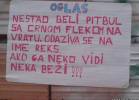 OGLAS
NESTAO BELI PITBUL
SA CRNOM FLEKOM NA
VRATU. ODAZIVA SE NA
IME REKS.
AKO GA NEKO VIDI
NEKA BEŽI !!!